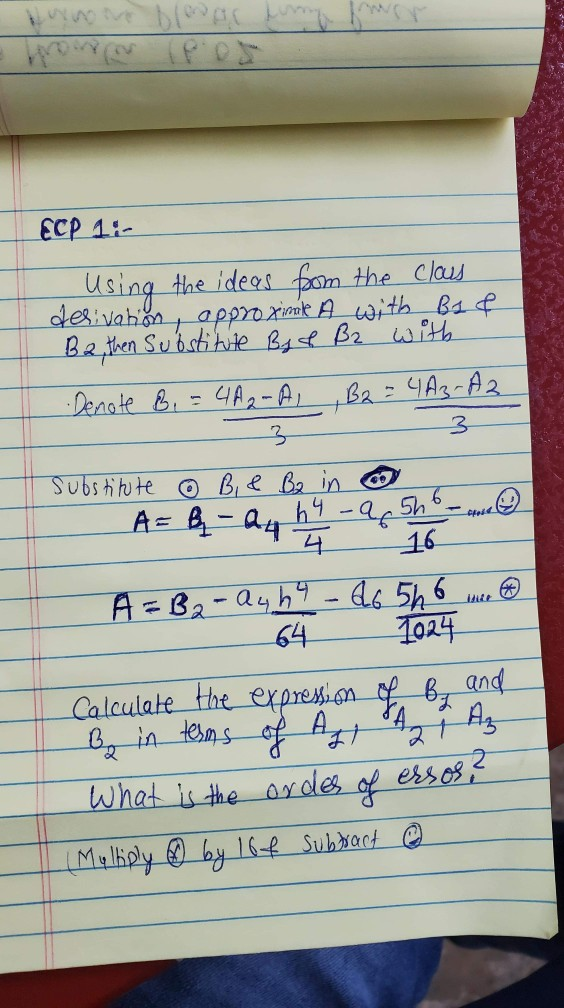 Plastic
18.02
ECP 1:-
Using the ideas from the class
derivation, approximate A with B1 &
B2, then Substitute B1 & B2 with
Denote B₁ = 4A₂-A₁ / 3 , B2 = 4A3-A2 / 3
Substitute ⊙ B₁ & B₂ in
A = B₁ - a₄ h⁴/4 - a₆ 5h⁶/16 - ..... ☺
A = B₂ - a₄ h⁴/64 - a₆ 5h⁶/1024 ..... ⊛
Calculate the expression of B₂ and
B₂ in terms of A₁, A₂, A₃
What is the order of error?
(Multiply ⊛ by 16 & subtract ☺